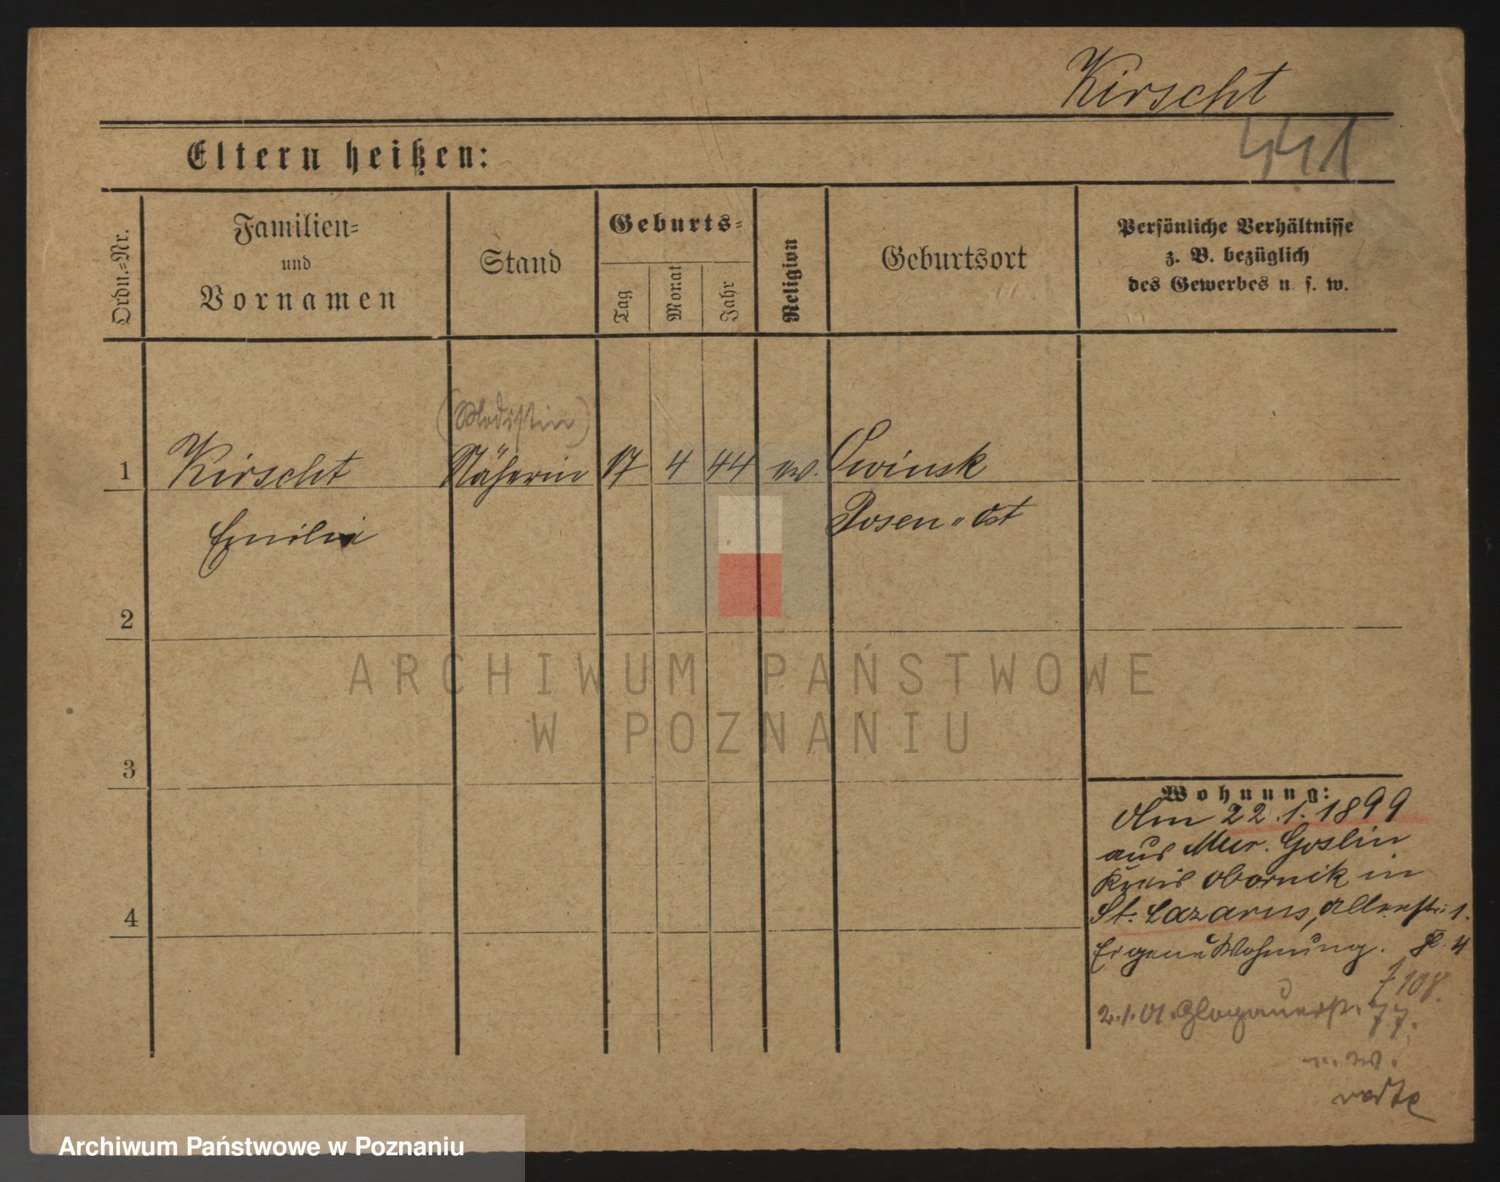 Kirscht
441
Eltern heißen:
Ordn.-Nr.
Familien-
und
Vornamen
Stand
Geburts-
Tag
Monat
Jahr
Religion
Geburtsort
Persönliche Verhältnisse
z. B. bezüglich
des Gewerbes u. s. w.
(Modistin)
1 Kirscht Näherin 17 4 44 ev. Owinsk
Emilie Posen-Ost
2
3
4
Wohnung:
Am 22.1.1899
aus Mur. Goslin
Kreis Obornik in
St. Lazarus, 1.
Eigene Wohnung. 4
108.
2.1.01. Glogauerstr. 77.
verte
ARCHIWUM PAŃSTWOWE
W POZNANIU
Archiwum Państwowe w Poznaniu